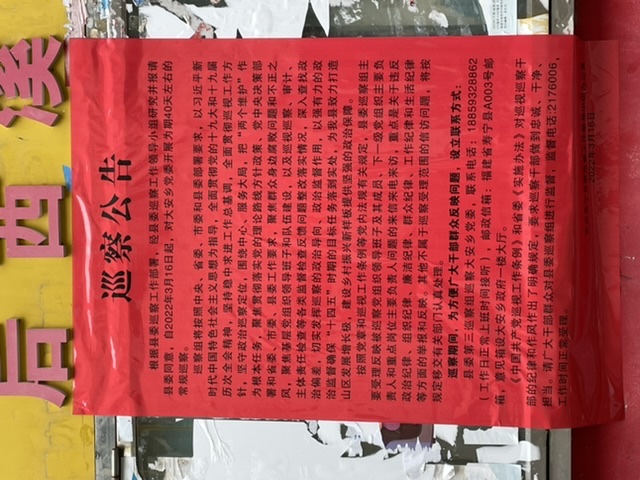 巡察公告
根据县委巡察工作部署，经县委巡察工作领导小组研究并报请
县委同意，自2022年3月16日起，对大安乡党委开展为期40天左右的
常规巡察。
巡察组将按照中央、省委、市委和县委部署要求，以习近平新
时代中国特色社会主义思想为指导，全面贯彻党的十九大和十九届
历次全会精神，坚持稳中求进工作总基调，全面贯彻巡视工作方
针，坚守政治巡察定位，围绕中心、服务大局，把“两个维护”作
为根本任务，聚焦贯彻落实党的理论路线方针政策、党中央决策部
署和省委、市委、县委工作要求，聚焦群众身边腐败问题和不正之
风，聚焦基层党组织领导班子和队伍建设，以及巡视巡察、审计、
主体责任检查等各类监督检查反馈问题整改落实情况，深入查找政
治偏差，切实发挥巡察的政治导向、政治监督作用，以强有力的政
治监督确保“十四五”时期的目标任务落到实处，为我县致力打造
山区发展增长极、建设乡村振兴新样板提供坚强的政治保障。
按照党章和巡视工作条例等党内法规有关规定，县委巡察组主
要受理反映被巡察党组织领导班子及其成员、下一级党组织主要负
责人和重点岗位主要负责人问题的来信来电来访，重点是关于违反
政治纪律、组织纪律、廉洁纪律、群众纪律、工作纪律和生活纪律
等方面的举报和反映。其他不属于巡察受理范围的信访问题，将按
规定移交有关部门认真处理。
巡察期间，为方便广大干部群众反映问题，设立联系方式：
县委第三巡察组巡察大安乡党委，联系电话：18859328862
（工作日正常上班时间接听），邮政信箱：福建省寿宁县A003号邮
箱，意见箱设在大安乡政府一楼大厅。
《中国共产党巡视工作条例》和省委《实施办法》对巡视巡察干
部的纪律和作风作出了明确规定，要求巡察干部做到忠诚、干净、
担当。请广大干部群众对县委巡察组进行监督，监督电话：2176006，
工作时间正常受理。
2022年3月16日
溪
西
后